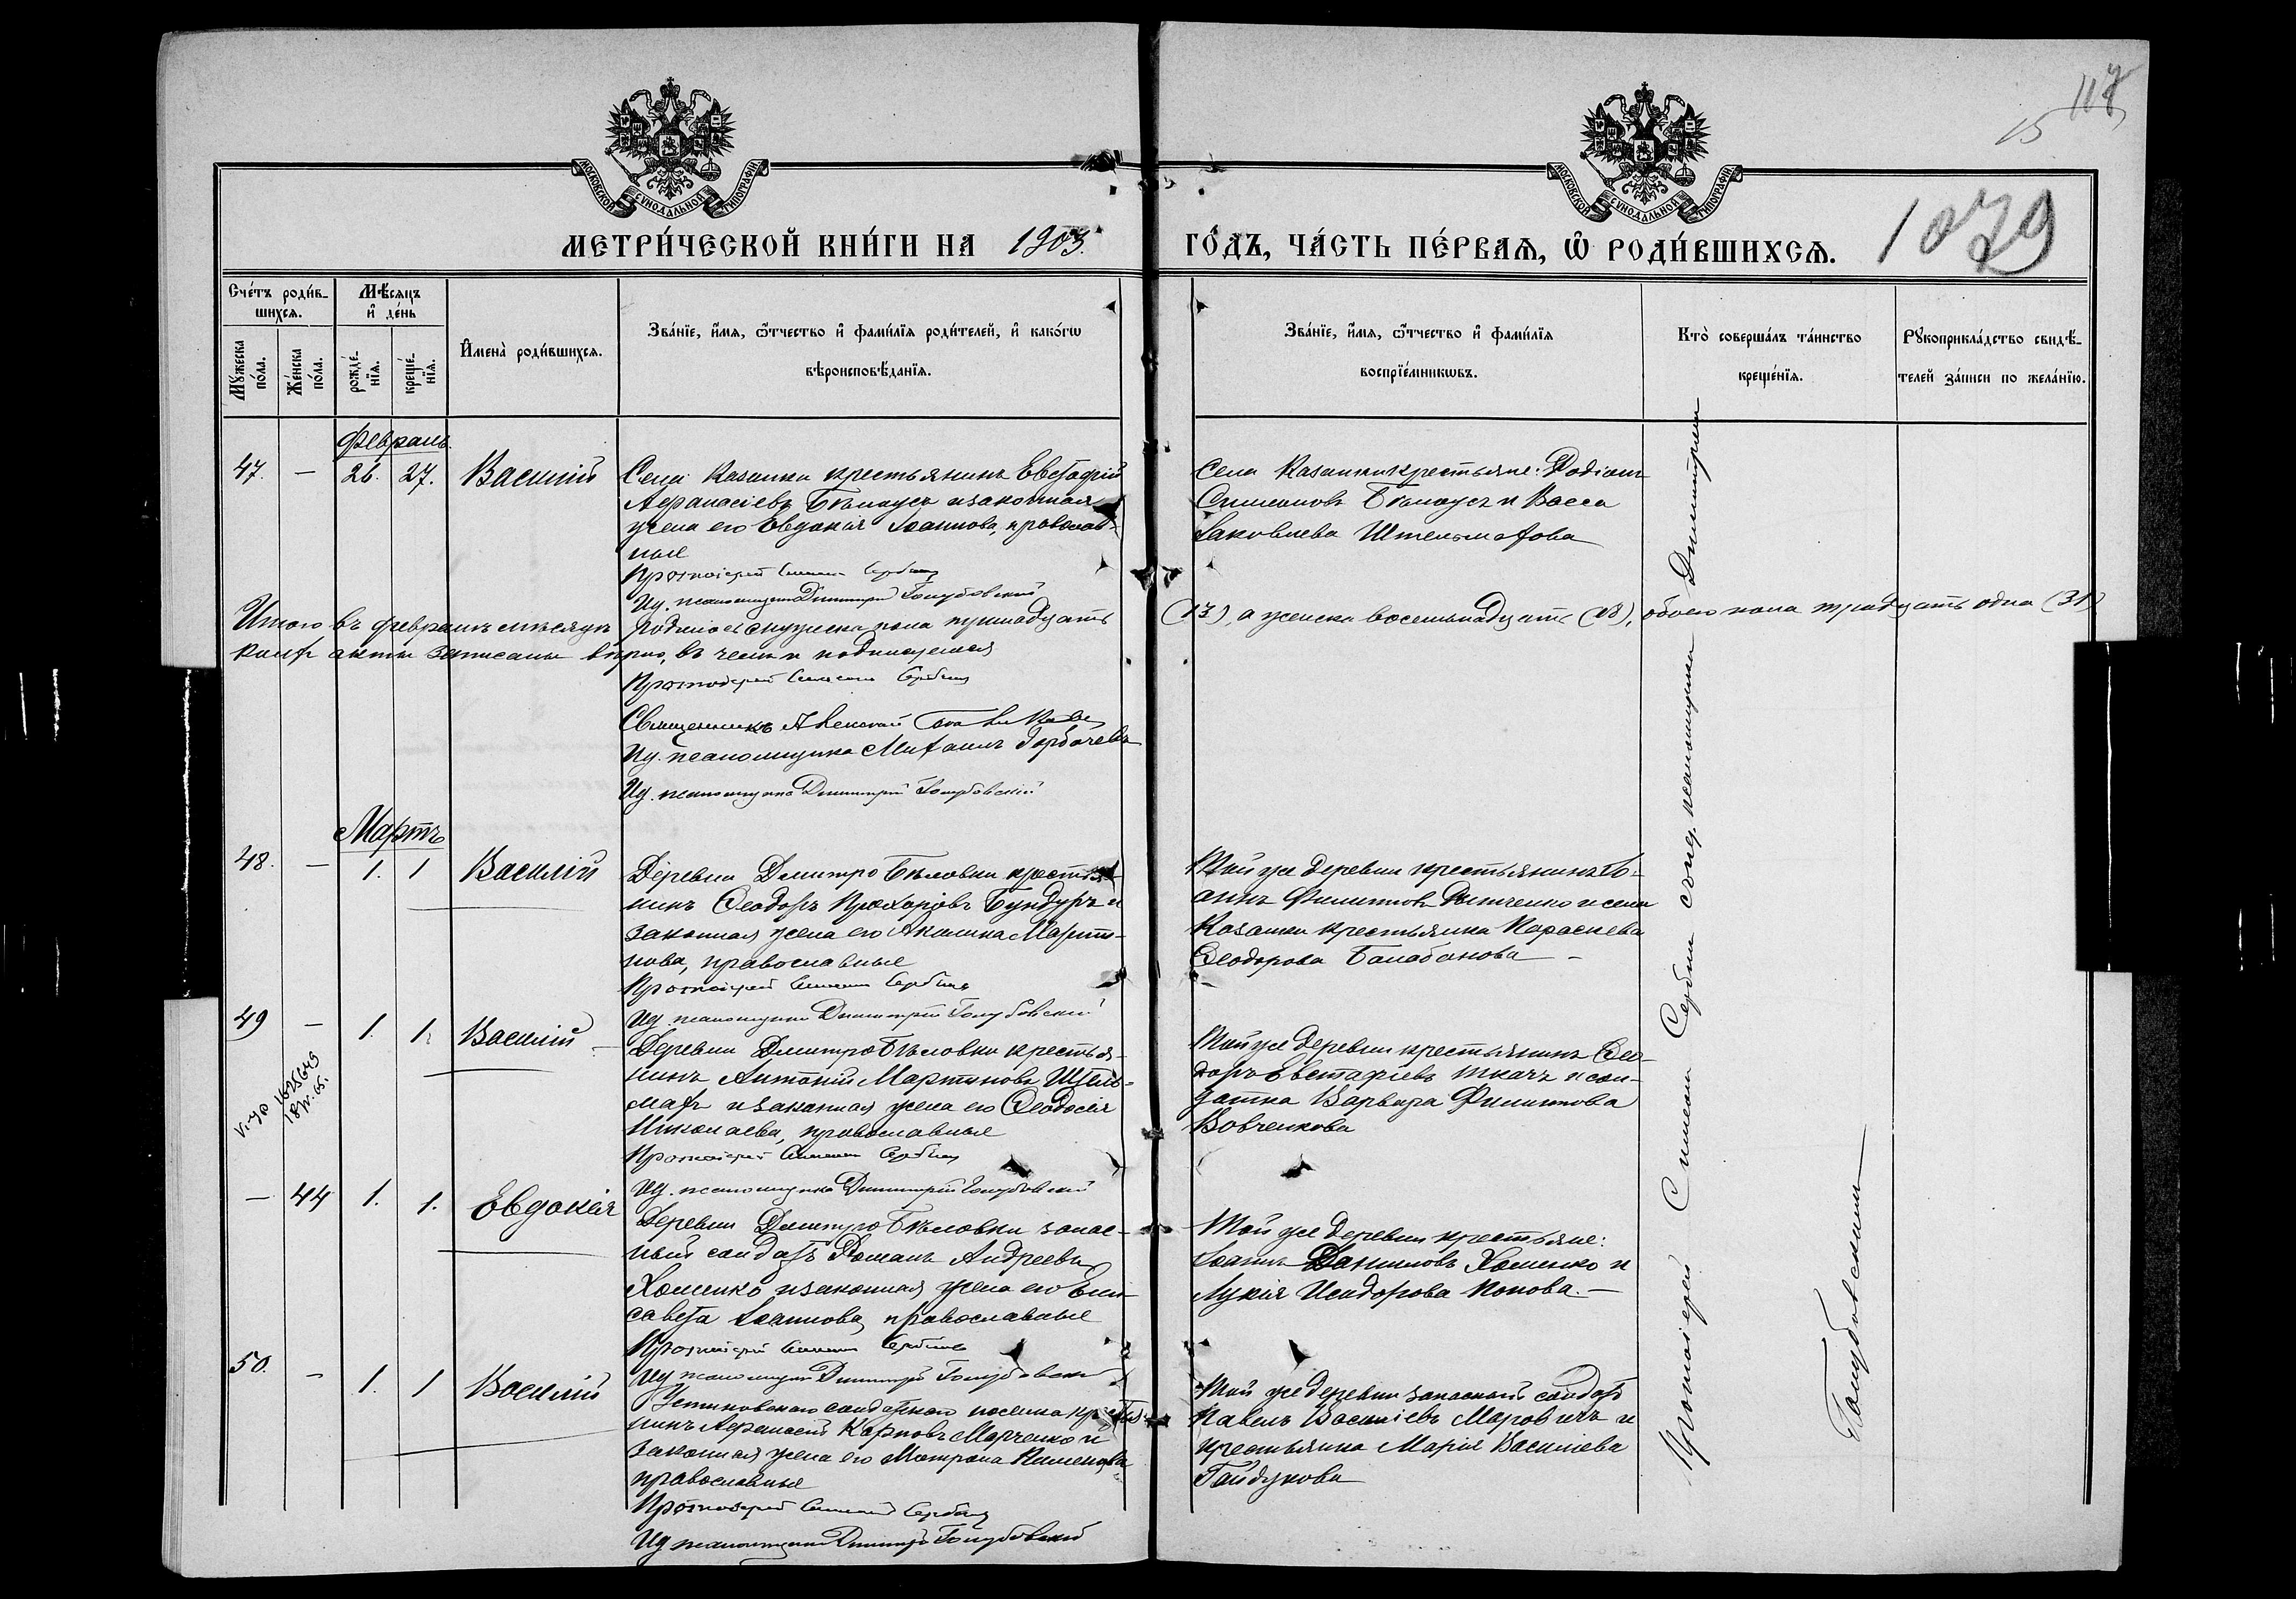 117
15
МОСКОВСКОЙ СѴНОДАЛЬНОЙ ТИПОГРАФІИ
МОСКОВСКОЙ СѴНОДАЛЬНОЙ ТИПОГРАФІИ
МЕТРИ́ЧЕСКОЙ КНИ́ГИ НА 1903.
ГО́ДЪ, ЧА́СТЬ ПЕ́РВАѦ, Ѽ РОДИ́ВШИХСѦ. 1079
Сче́тъ роди́в-
шихсѧ.
Мꙋ́жеска по́ла.
Же́нска по́ла.
Мѣ́сѧцъ
и҆ де́нь
рожде́-нїѧ.
креще́-нїѧ.
И҆мена̀ роди́вшихсѧ.
Зва́нїе, и҆́мѧ, ѻ҆́тчество и҆ фами́лїѧ роди́телей, и҆ како́гѡ
вѣроисповѣ́данїѧ.
Зва́нїе, и҆́мѧ, ѻ҆́тчество и҆ фами́лїѧ
воспрїе́мникѡвъ.
Кто̀ соверша́лъ та́инство
креще́нїѧ.
Рꙋкоприкла́дство свидѣ́-
телей за́писи по жела́нїю.
Февраль.
47. — 26. 27. Василій
Села Казанки крестьянинъ Евстафій
Афанасіевъ Бѣлоусъ и законная
жена его Евдокія Іоаннова, православ-
ные
Протоіерей Симеонъ Сербинъ
Ид. псаломщика Димитрій Голубовскій
Села Казанки крестьяне: Родіонъ
Симеоновъ Бѣлоусъ и Васса
Іаковлева Штельмахова
Итого въ февралѣ мѣсяцѣ родилось мужеска пола тринадцать (13), а женска восемнадцать (18), обоего пола тридцать одна (31)
акты записаны вѣрно, въ чемъ и подписуемся
Протоіерей Симеонъ Сербинъ
Священникъ Алексій
Ид. псаломщика Михаилъ Горбачевъ
Ид. псаломщика Димитрій Голубовскій
Мартъ
48. — 1. 1 Василій
Деревни Димитро Бѣловки крестья-
нинъ Ѳеодоръ Прохоровъ Бундуръ и
законная жена его Акилина Марти-
нова, православные
Протоіерей Симеонъ Сербинъ
Ид. псаломщика Димитрій Голубовскій
Той же деревни крестьянинъ Іо-
аннъ Филиповъ и села
Казанки крестьянка Параскева
Ѳеодорова Балабанова —
49 — 1. 1. Василій
Деревни Димитро Бѣловки крестья-
нинъ Антоній Мартиновъ Штель-
махъ и законная жена его Ѳеодосія
Николаева, православные
Протоіерей Симеонъ Сербинъ
Ид. псаломщика Димитрій Голубовскій
Той же деревни крестьянинъ Ѳео-
доръ Евстафіевъ Ткачъ и сол-
датка Варвара Филипова
Вовченкова
— 44 1. 1. Евдокія
Деревни Димитро Бѣловки запас-
ный солдатъ Романъ Андреевъ
Хоменко и законная жена его Ели-
савета Іоаннова, православные
Протоіерей Симеонъ Сербинъ
Ид. псаломщика Димитрій Голубовскій
Той же деревни крестьяне:
Іоаннъ Даниловъ Хоменко и
Лукія Исидорова Попова. —
50. — 1. 1 Василій
Устиновскаго солдатскаго поселка крестья-
нинъ Афанасій Карповъ Марченко и
законная жена его Матрона Пименова
православные
Протоіерей Симеонъ Сербинъ
Ид. псаломщика Димитрій Голубовскій
Той же деревни запасный солдатъ
Павелъ Василіевъ Маровичъ и
крестьянка Марія Василіева
Гайдукова
Протоіерей Симеонъ Сербинъ съ ид. псаломщика Димитріемъ
Голубовскимъ